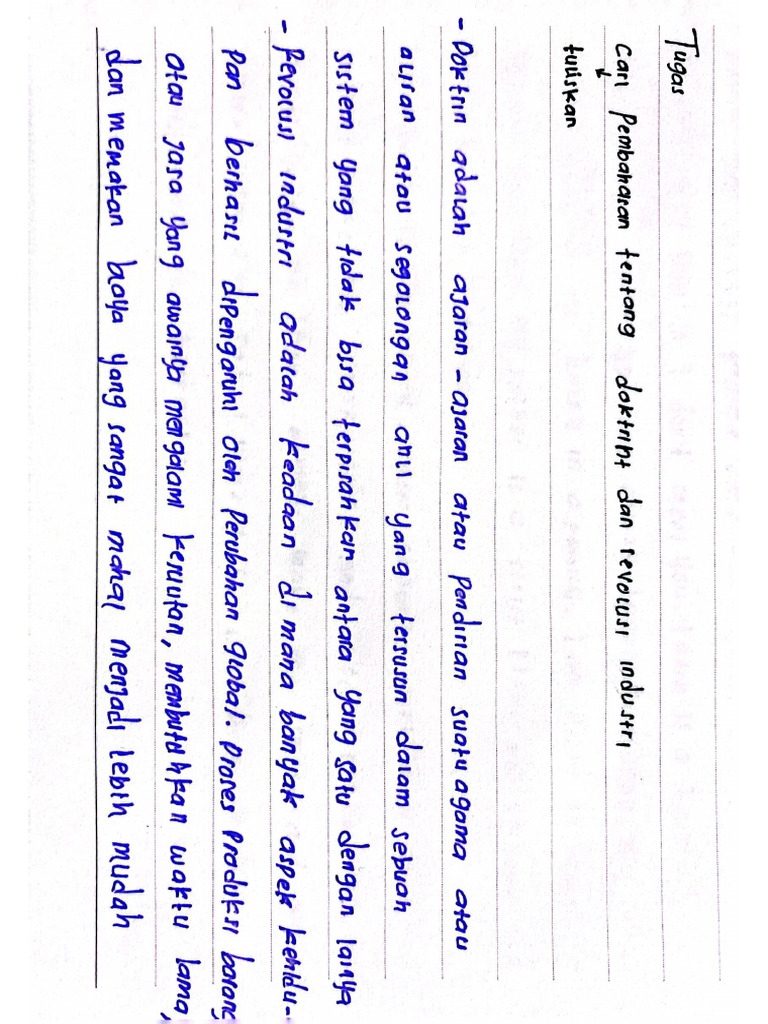 Tugas
Cari Pembaharuan tentang doktrint dan revolusi industri
tuliskan
- Doktrin adalah ajaran - ajaran atau Pendirian suatu agama atau
aliran atau segolongan ahli yang tersusun dalam sebuah
sistem yang tidak bisa terpisahkan antara yang satu dengan lainya
- Revolusi industri adalah keadaan di mana banyak aspek kehidu-
pan berhasil dipengaruhi oleh Perubahan global. Proses Produksi barang
atau jasa yang awalnya mengalami kerumitan, membutuhkan waktu lama,
dan memakan biaya yang sangat mahal menjadi lebih mudah